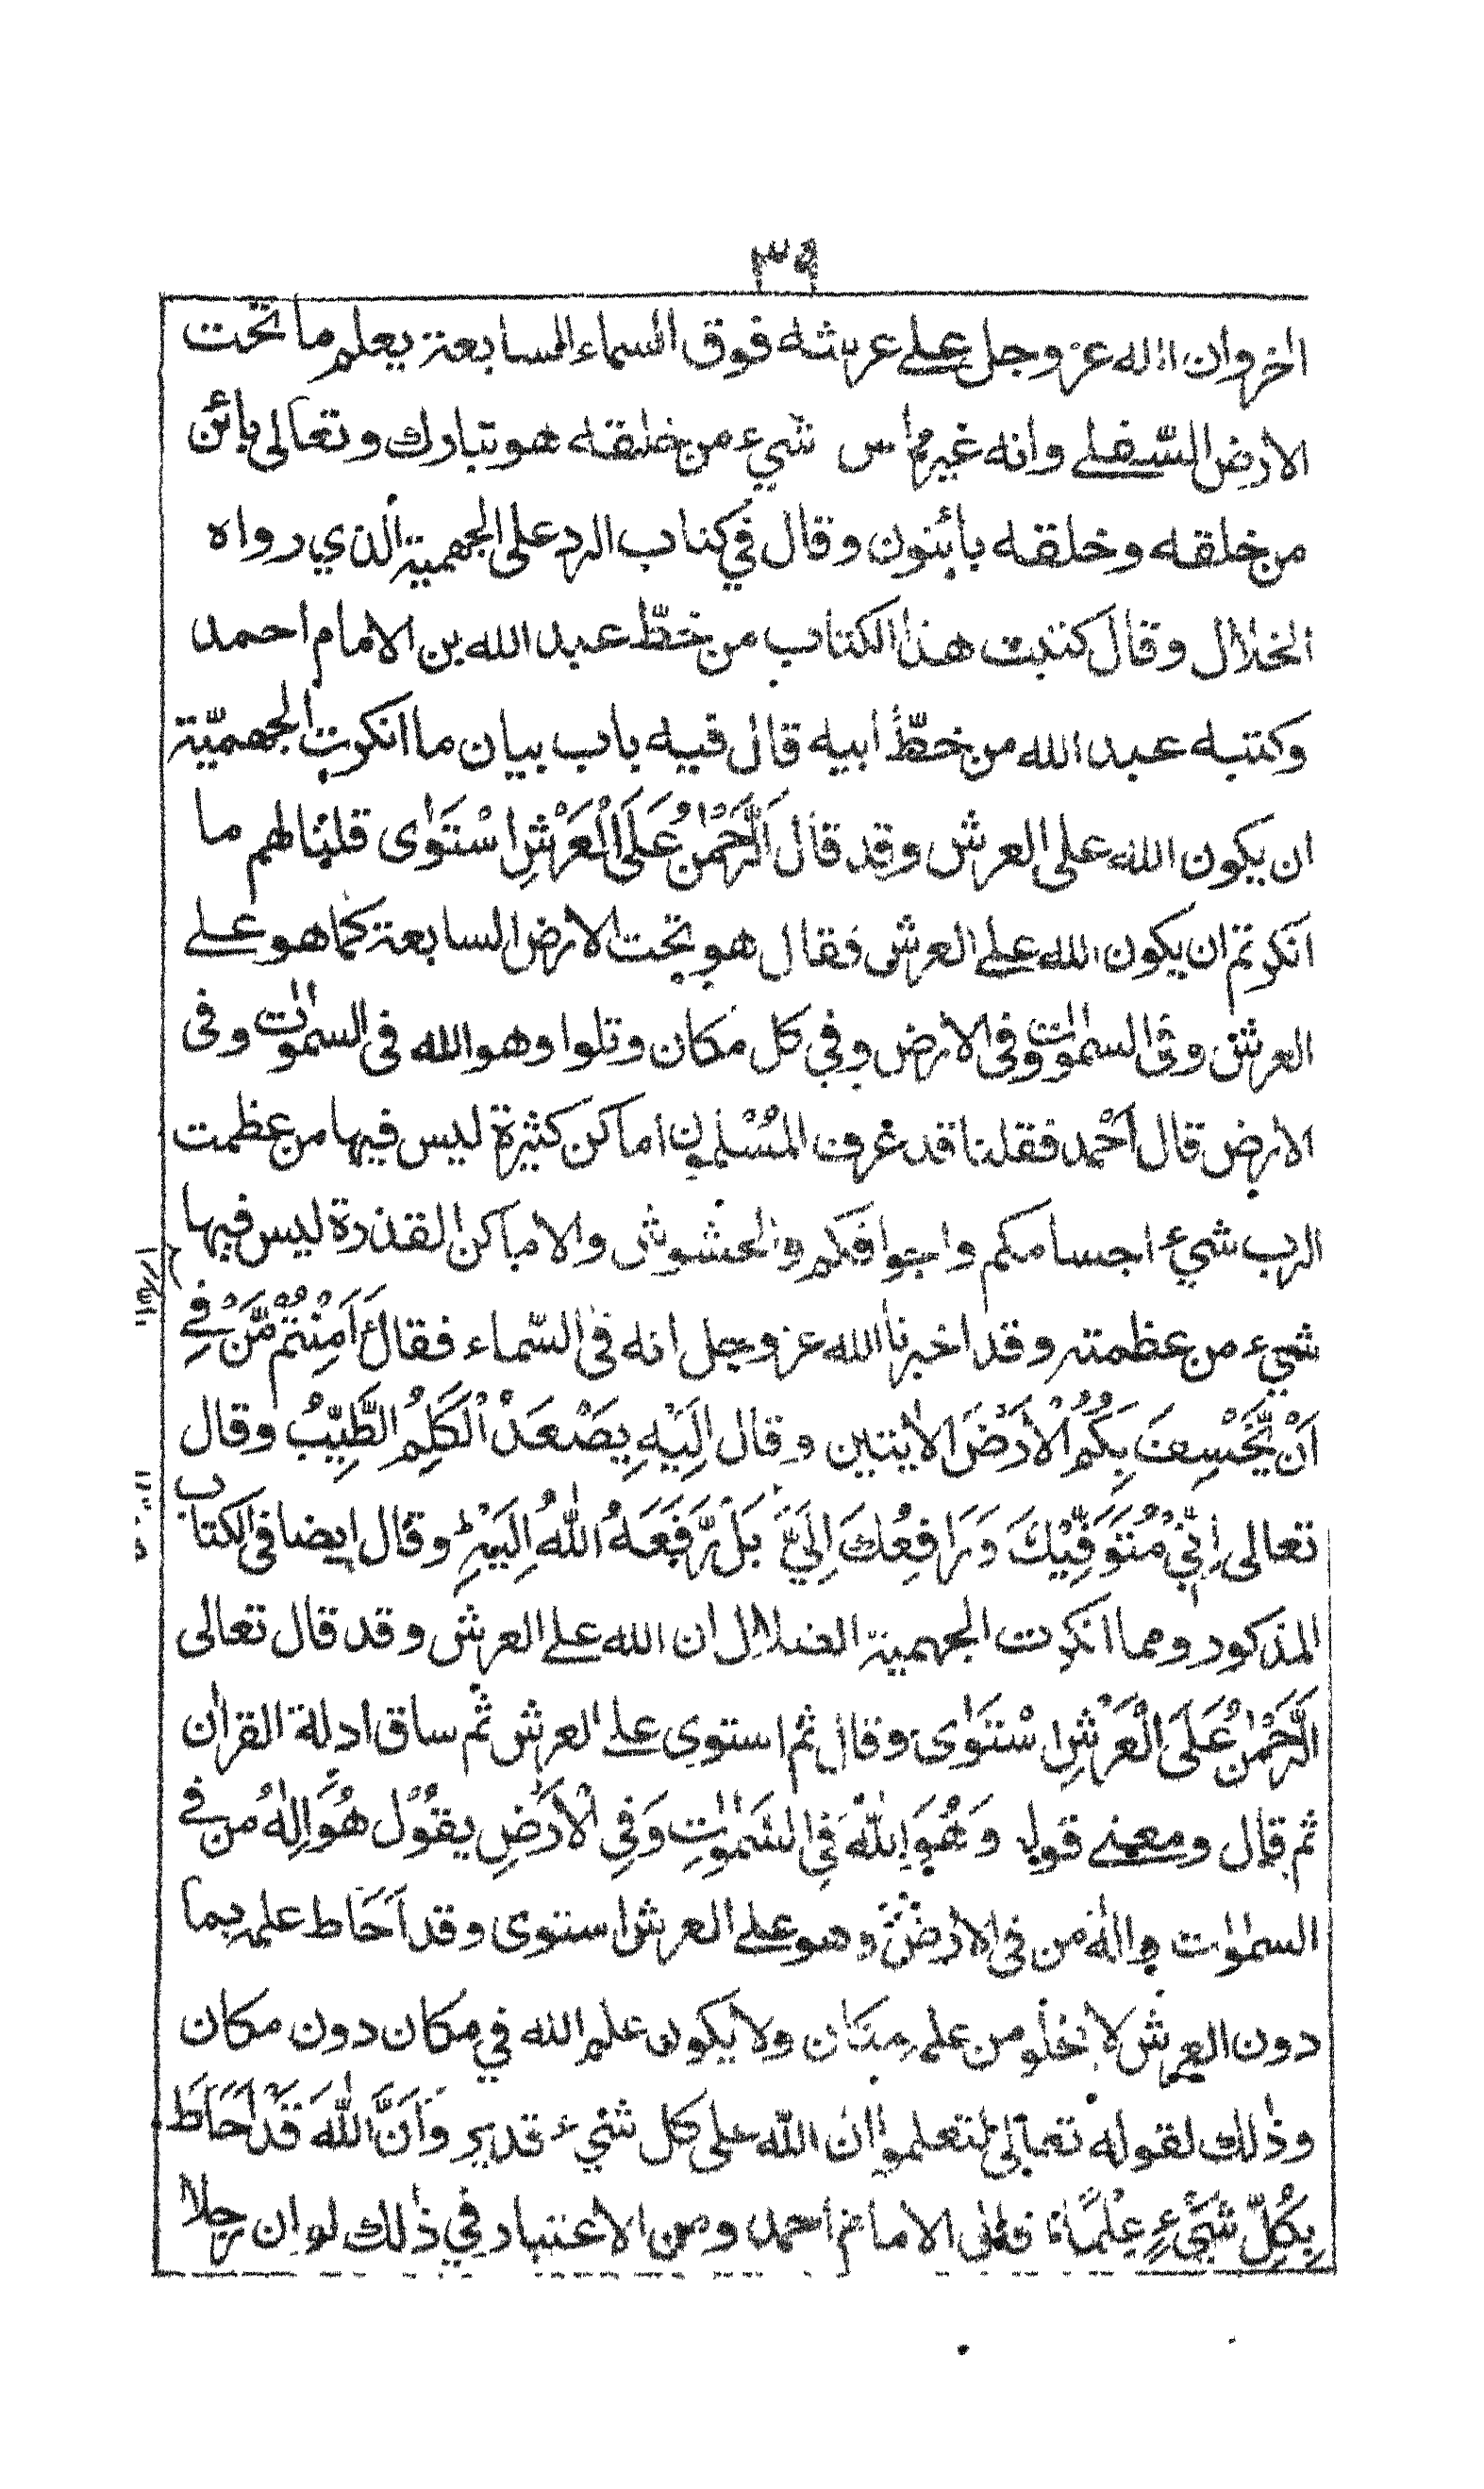 ٣٩
اخر وان الله عز وجل على عرشه فوق السماء السابعة يعلم ما تحت
الارض السفلى وانه غير مماس شيء من خلقه هو تبارك وتعالى بائن
من خلقه وخلقه بائنون وقال في كتاب الرد على الجهمية الذي رواه
الخلال وقال كتبت هذا الكتاب من خطّ عبد الله بن الامام احمد
وكتبه عبد الله من خطّ ابيه قال فيه باب بيان ما انكرت الجهميّة
ان يكون الله على العرش وقد قال اَلرَّحْمٰنُ عَلَى الْعَرْشِ اسْتَوٰى قلنا لهم ما
انكرتم ان يكون الله على العرش فقال هو تحت الارض السابعة كما هو على
العرش وفى السمٰوٰت وفى الارض وفي كل مكان وتلوا وهو الله فى السمٰوٰت وفى
الارض قال اَحْمد فقلنا قد عرف المُسْلمُون اماكن كثيرة ليس فيها من عظمت
الرب شيء اجسامكم واجوافكم والحشوش والاماكن القذرة ليس فيها
شيء من عظمته وقد اخبرنا الله عز وجل انه فى السّماء فقال ءَاَمِنْتُمْ مَّنْ فِي
اَنْ يَّخْسِفَ بِكُمُ الْاَرْضَ الاٰيتين وقال اِلَيْهِ يَصْعَدُ الْكَلِمُ الطَّيِّبُ وقال
تعالى اِنِّيْ مُتَوَفِّيْكَ وَرَافِعُكَ اِلَيَّ بَلْ رَّفَعَهُ اللّٰهُ اِلَيْهِ وقال ايضا فى الكتاب
المذكور ومما انكرت الجهمية الضلال ان الله على العرش وقد قال تعالى
اَلرَّحْمٰنُ عَلَى الْعَرْشِ اسْتَوٰى وقال ثم استوى على العرش ثم ساق ادلة القراٰن
ثم قال ومعنى قوله وَهُوَ اللّٰهُ فِي السَّمٰوٰتِ وَفِي الْاَرْضِ يقُوْل هُوَ اِلٰهُ من في
السمٰوٰت واِلٰهُ من فى الارض وهو على العرش استوى وقد اَحَاط علمه بما
دون العرش لا يخلو من علمه مكان ولا يكون علم الله في مكان دون مكان
وذٰلك لقوله تعالىٰ لتعلموا ان اللّٰه على كل شيء قدير وَاَنَّ اللّٰهَ قَدْ اَحَاطَ
بِكُلِّ شَيْءٍ عِلْمًا قال الامام احمد ومن الاعتبار في ذٰلك لو ان رجلا